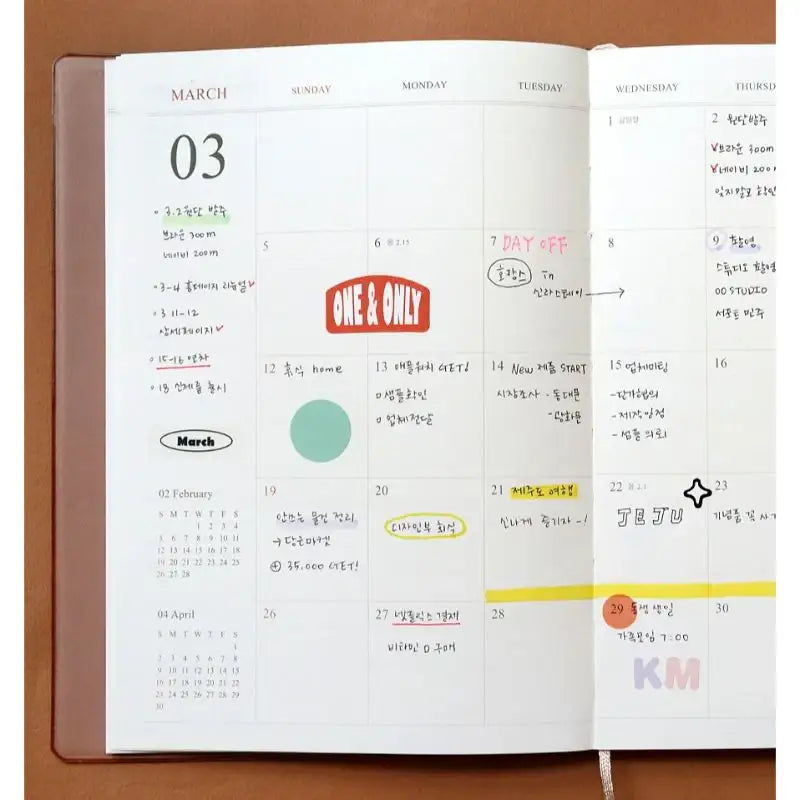 MARCH
03
3.2 원단 발주
브라운 300m
네이비 200m
3-4 홈페이지 리뉴얼
3 11-12
상세페이지
15-16 연차
18 신제품 출시
March
02 February
S M T W T F S
1 2 3 4
5 6 7 8 9 10 11
12 13 14 15 16 17 18
19 20 21 22 23 24 25
26 27 28
04 April
S M T W T F S
1
2 3 4 5 6 7 8
9 10 11 12 13 14 15
16 17 18 19 20 21 22
23 24 25 26 27 28 29
30
SUNDAY MONDAY TUESDAY WEDNESDAY THURSD
1 삼일절
2 원단발주
브라운 300m
네이비 200m
잊지말고 확인
5
6 음 2.15
ONE & ONLY
7 DAY OFF
호캉스 in
신라스테이
8
9 촬영
스튜디오 촬영
00 STUDIO
서포트 민주
12 휴식 home
13 애플워치 GET!
샘플확인
업체전달
14 NEW 제품 START
시장조사 - 동대문
- 광화문
15 업체미팅
- 단가협의
- 제작일정
- 샘플 의뢰
16
19
안쓰는 물건 정리
→ 당근마켓
⊕ 35.000 GET!
20
디자인부 회식
21 제주도 여행
신나게 즐기자 ~!
22 음 2.1
JEJU
23
기념품 꼭 사기
26
27 넷플릭스 결제
비타민 D 구매
28
29 동생 생일
가족모임 7:00
KM
30